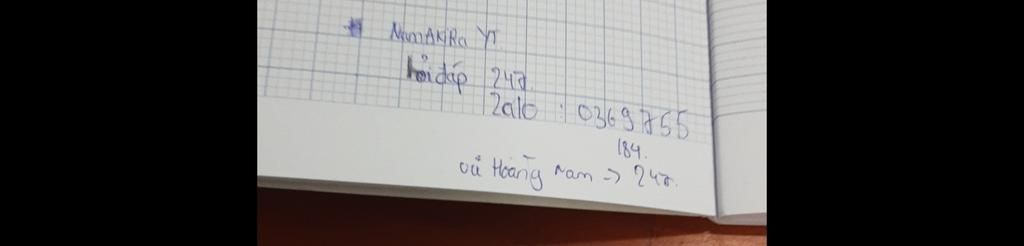 * NamAKiRa YT
hỏi đáp 247.
Zalo : 0369755
184.
Vũ Hoàng Nam -> 247.